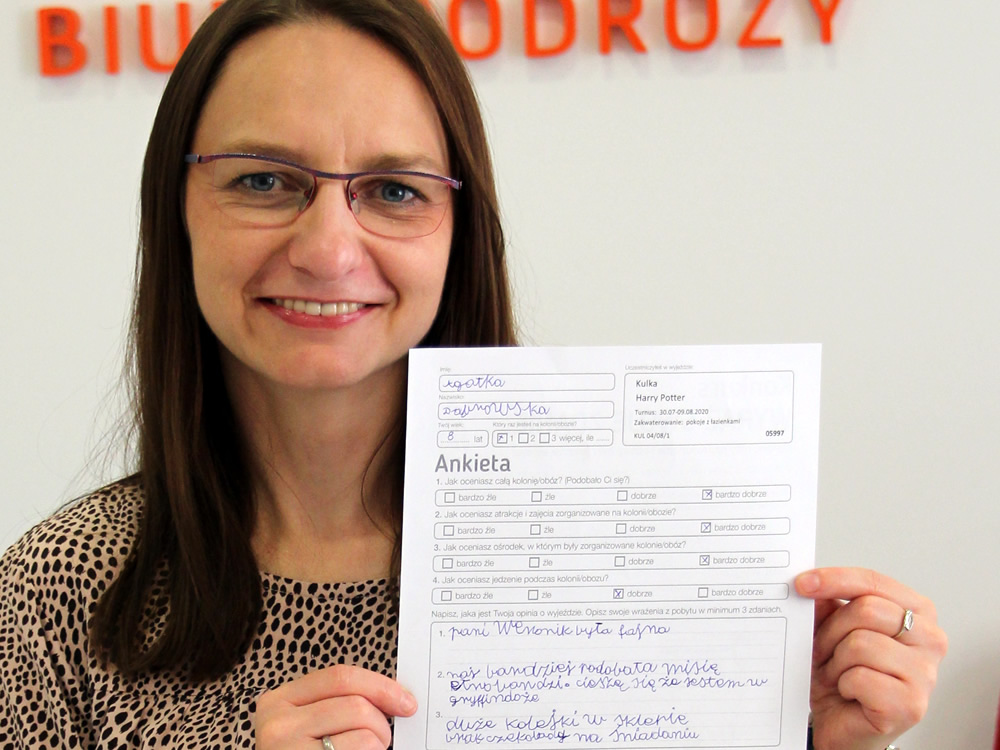 BIU ODRÓŻY
Imię:
Agatka
Nazwisko:
Twój wiek:
8 lat
Który raz jesteś na kolonii/obozie?
1 2 3 więcej, ile ......
Uczestniczyłeś w wyjeździe:
Kulka
Harry Potter
Turnus: 30.07-09.08.2020
Zakwaterowanie: pokoje z łazienkami
KUL 04/08/1 05997
Ankieta
1. Jak oceniasz całą kolonię/obóz? (Podobało Ci się?)
bardzo źle źle dobrze bardzo dobrze
2. Jak oceniasz atrakcje i zajęcia zorganizowane na kolonii/obozie?
bardzo źle źle dobrze bardzo dobrze
3. Jak oceniasz ośrodek, w którym były zorganizowane kolonie/obóz?
bardzo źle źle dobrze bardzo dobrze
4. Jak oceniasz jedzenie podczas kolonii/obozu?
bardzo źle źle dobrze bardzo dobrze
Napisz, jaka jest Twoja opinia o wyjeździe. Opisz swoje wrażenia z pobytu w minimum 3 zdaniach.
1. pani Wenonik była fajna
2. naj bardziej podobała mi się
cieszą się że jestem w
gryfindoże
3. duże kolejki w sklepie
brak czekolady na śniadaniu